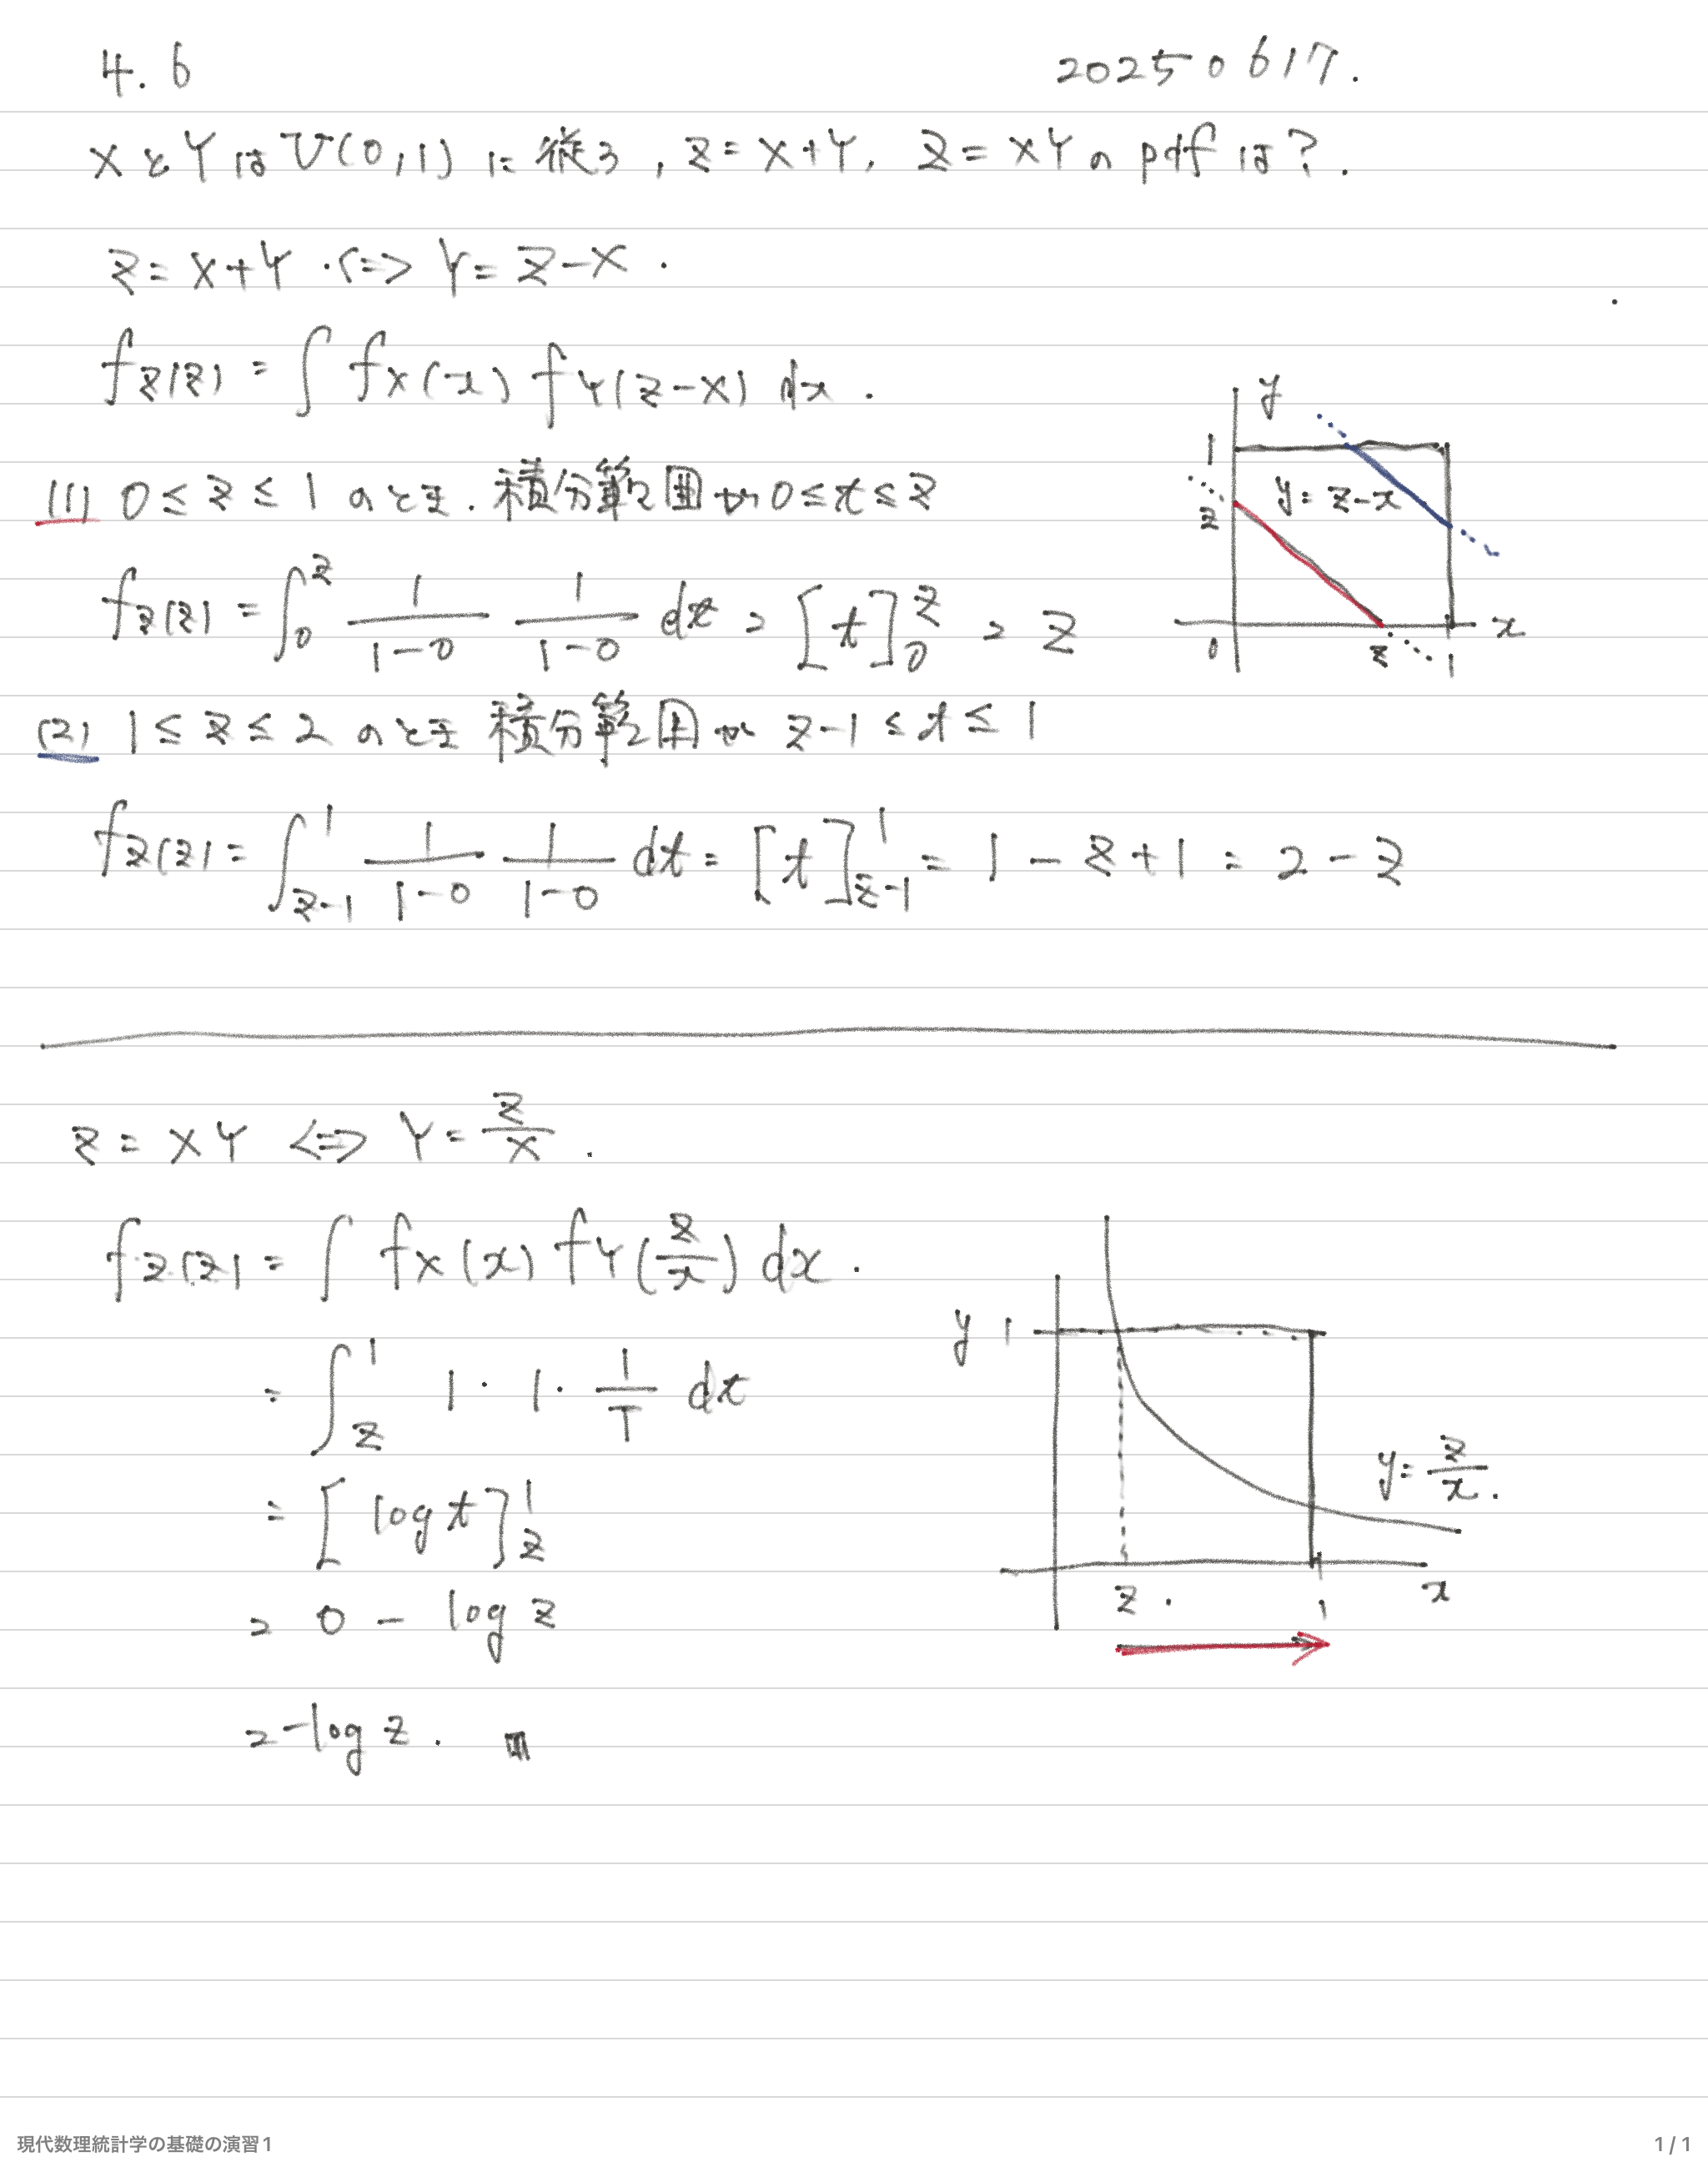 4.6 20250617.
XとYはU(0,1)に従う, Z=X+Y, Z=XYのpdfは?.
Z=X+Y ⇔ Y=Z-X.
f_Z(z) = ∫ f_X(x) f_Y(z-x) dx.
y
1
z
y=z-x
0
z
1
x
(1) 0≤z≤1 のとき. 積分範囲が 0≤t≤z
f_Z(z) = ∫_0^z 1/(1-0) 1/(1-0) dt = [t]_0^z = z
(2) 1≤z≤2 のとき 積分範囲が z-1≤t≤1
f_Z(z) = ∫_{z-1}^1 1/(1-0) 1/(1-0) dt = [t]_{z-1}^1 = 1-z+1 = 2-z
Z=XY ⇔ Y=Z/X.
f_Z(z) = ∫ f_X(x) f_Y(z/x) dx.
= ∫_z^1 1・1・1/T dt
= [log t]_z^1
= 0 - log z
= -log z.
y 1
y=z/x.
z.
1
x
現代数理統計学の基礎の演習1
1 / 1